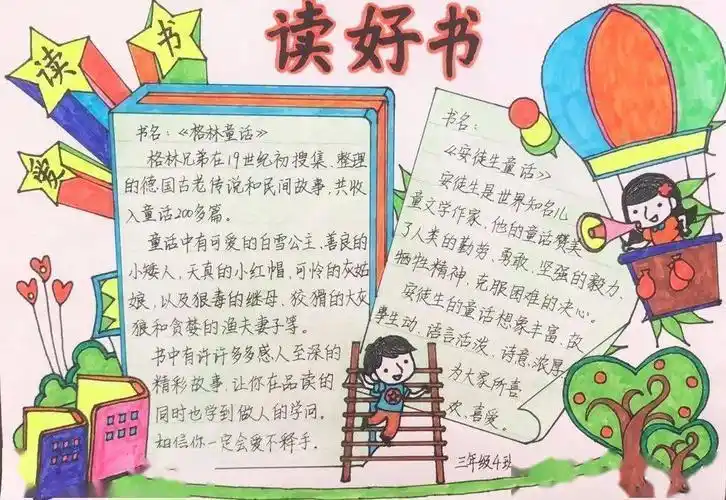 读好书
爱
读
书
书名：《格林童话》
格林兄弟在19世纪初搜集、整理
的德国古老传说和民间故事，共收
入童话200多篇。
童话中有可爱的白雪公主、善良的
小矮人，天真的小红帽，可怜的灰姑
娘，以及狠毒的继母，狡猾的大灰
狼和贪婪的渔夫妻子等。
书中有许许多多感人至深的
精彩故事，让你在品读的
同时也学到做人的学问。
相信你一定会爱不释手。
书名：
《安徒生童话》
安徒生是世界知名儿
童文学作家，他的童话赞美
了人类的勤劳、勇敢、坚强的毅力，
牺牲精神，克服困难的决心。
安徒生的童话想象丰富，故
事生动，语言活泼，诗意浓厚
为大家所喜
欢、喜爱。
三年级4班